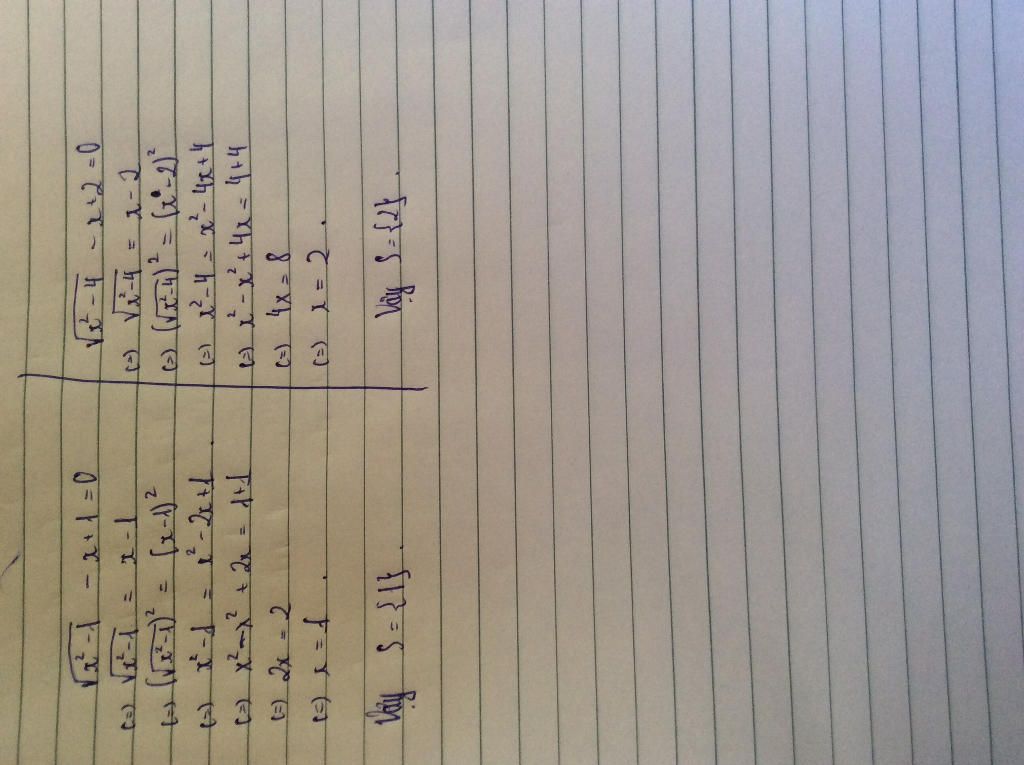 √x²-1 - x+1 = 0
(=) √x²-1 = x-1
(=) (√x²-1)² = (x-1)²
(=) x²-1 = x²-2x+1
(=) x²-x²+2x = 1+1
(=) 2x = 2
(=) x = 1.
Vậy S={1}.
√x²-4 - x+2 = 0
(=) √x²-4 = x-2
(=) (√x²-4)² = (x-2)²
(=) x²-4 = x²-4x+4
(=) x²-x²+4x = 4+4
(=) 4x = 8
(=) x = 2.
Vậy S={2}.